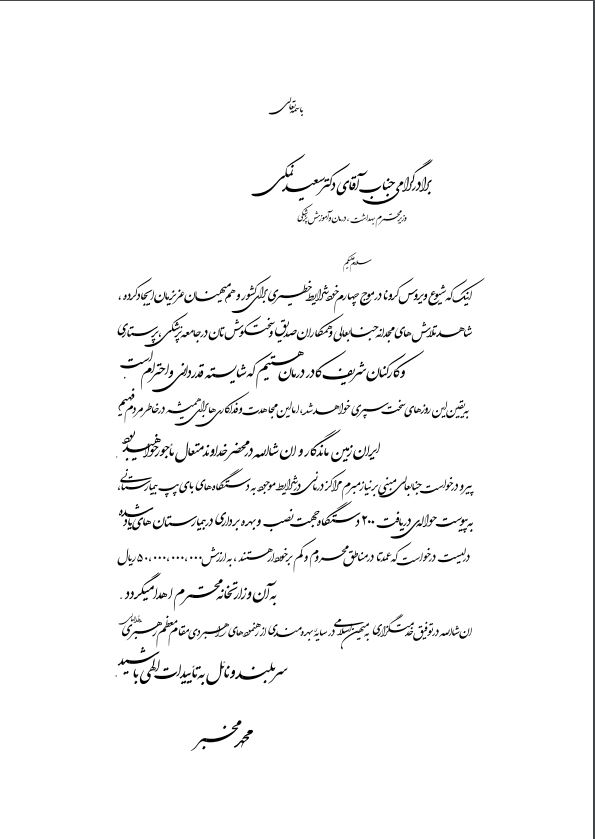 باسمه تعالی
برادر گرامی جناب آقای دکتر سعید نمکی
وزیر محترم بهداشت ، درمان و آموزش پزشکی
سلام علیکم
اینک که شیوع ویروس کرونا در موج چهارم خود شرایط خطیری برای کشور و هم میهنان عزیزمان ایجاد کرده ،
شاهد تلاش های مجدانه جنابعالی و همکاران صدیق و سخت کوش تان در جامعه پزشکی ، پرستاری
و کارکنان شریف کادر درمان هستیم که شایسته قدردانی و احترام است
به یقین این روزهای سخت سپری خواهد شد، اما این مجاهدت و فداکاری ها برای همیشه در خاطر مردم فهیم
ایران زمین ماندگار و ان شاالله در محضر خداوند متعال مأجور خواهید بود.
پیرو درخواست جنابعالی مبنی بر نیاز مبرم مراکز درمانی در شرایط موجود به دستگاه های بای پپ بیمارستانی،
به پیوست حواله ی دریافت ۲۰۰ دستگاه جهت نصب و بهره برداری در بیمارستان های یاد شده
در لیست درخواست که عمدتا در مناطق محروم و کم برخوردار هستند ، به ارزش ۵۰،۰۰۰،۰۰۰،۰۰۰ ریال
به آن وزارتخانه محترم اهدا میگردد .
ان شاالله در توفیق خدمتگزاری به میهن اسلامی در سایۀ بهره مندی از رهنمود های راهبردی مقام معظم رهبری
سربلند و نائل به تأییدات الهی باشید.
محمد مخبر